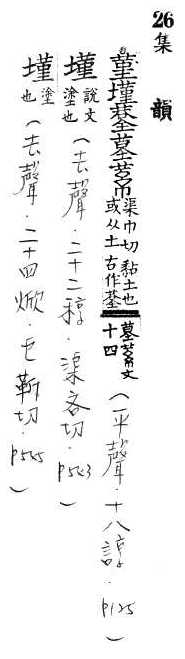 26 集韻
堇墐 渠巾切 黏土也 或从土 古作 文十四（平聲．十八諄．p125）
墐 說文塗也（去聲．二十二稕．渠吝切．p543）
墐 塗也（去聲．二十四焮．巨靳切．p545）